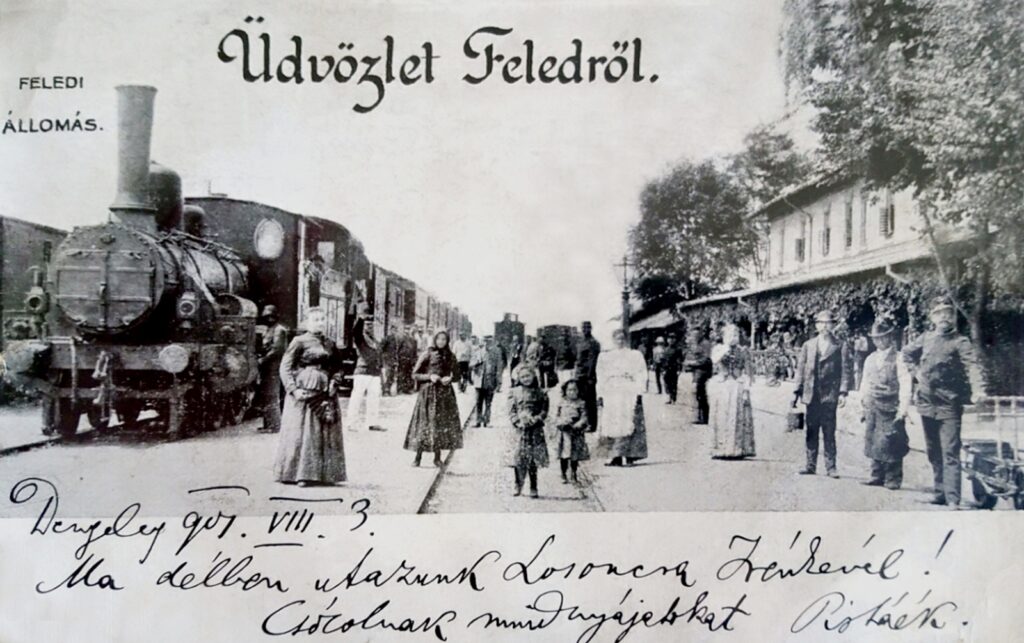 Üdvözlet Feledről.
FELEDI
ÁLLOMÁS.
Dengeleg 901. VIII. 3.
Ma délben utazunk Losoncra Irénkével!
Csócolnak mindnyájatokat Pistáék.